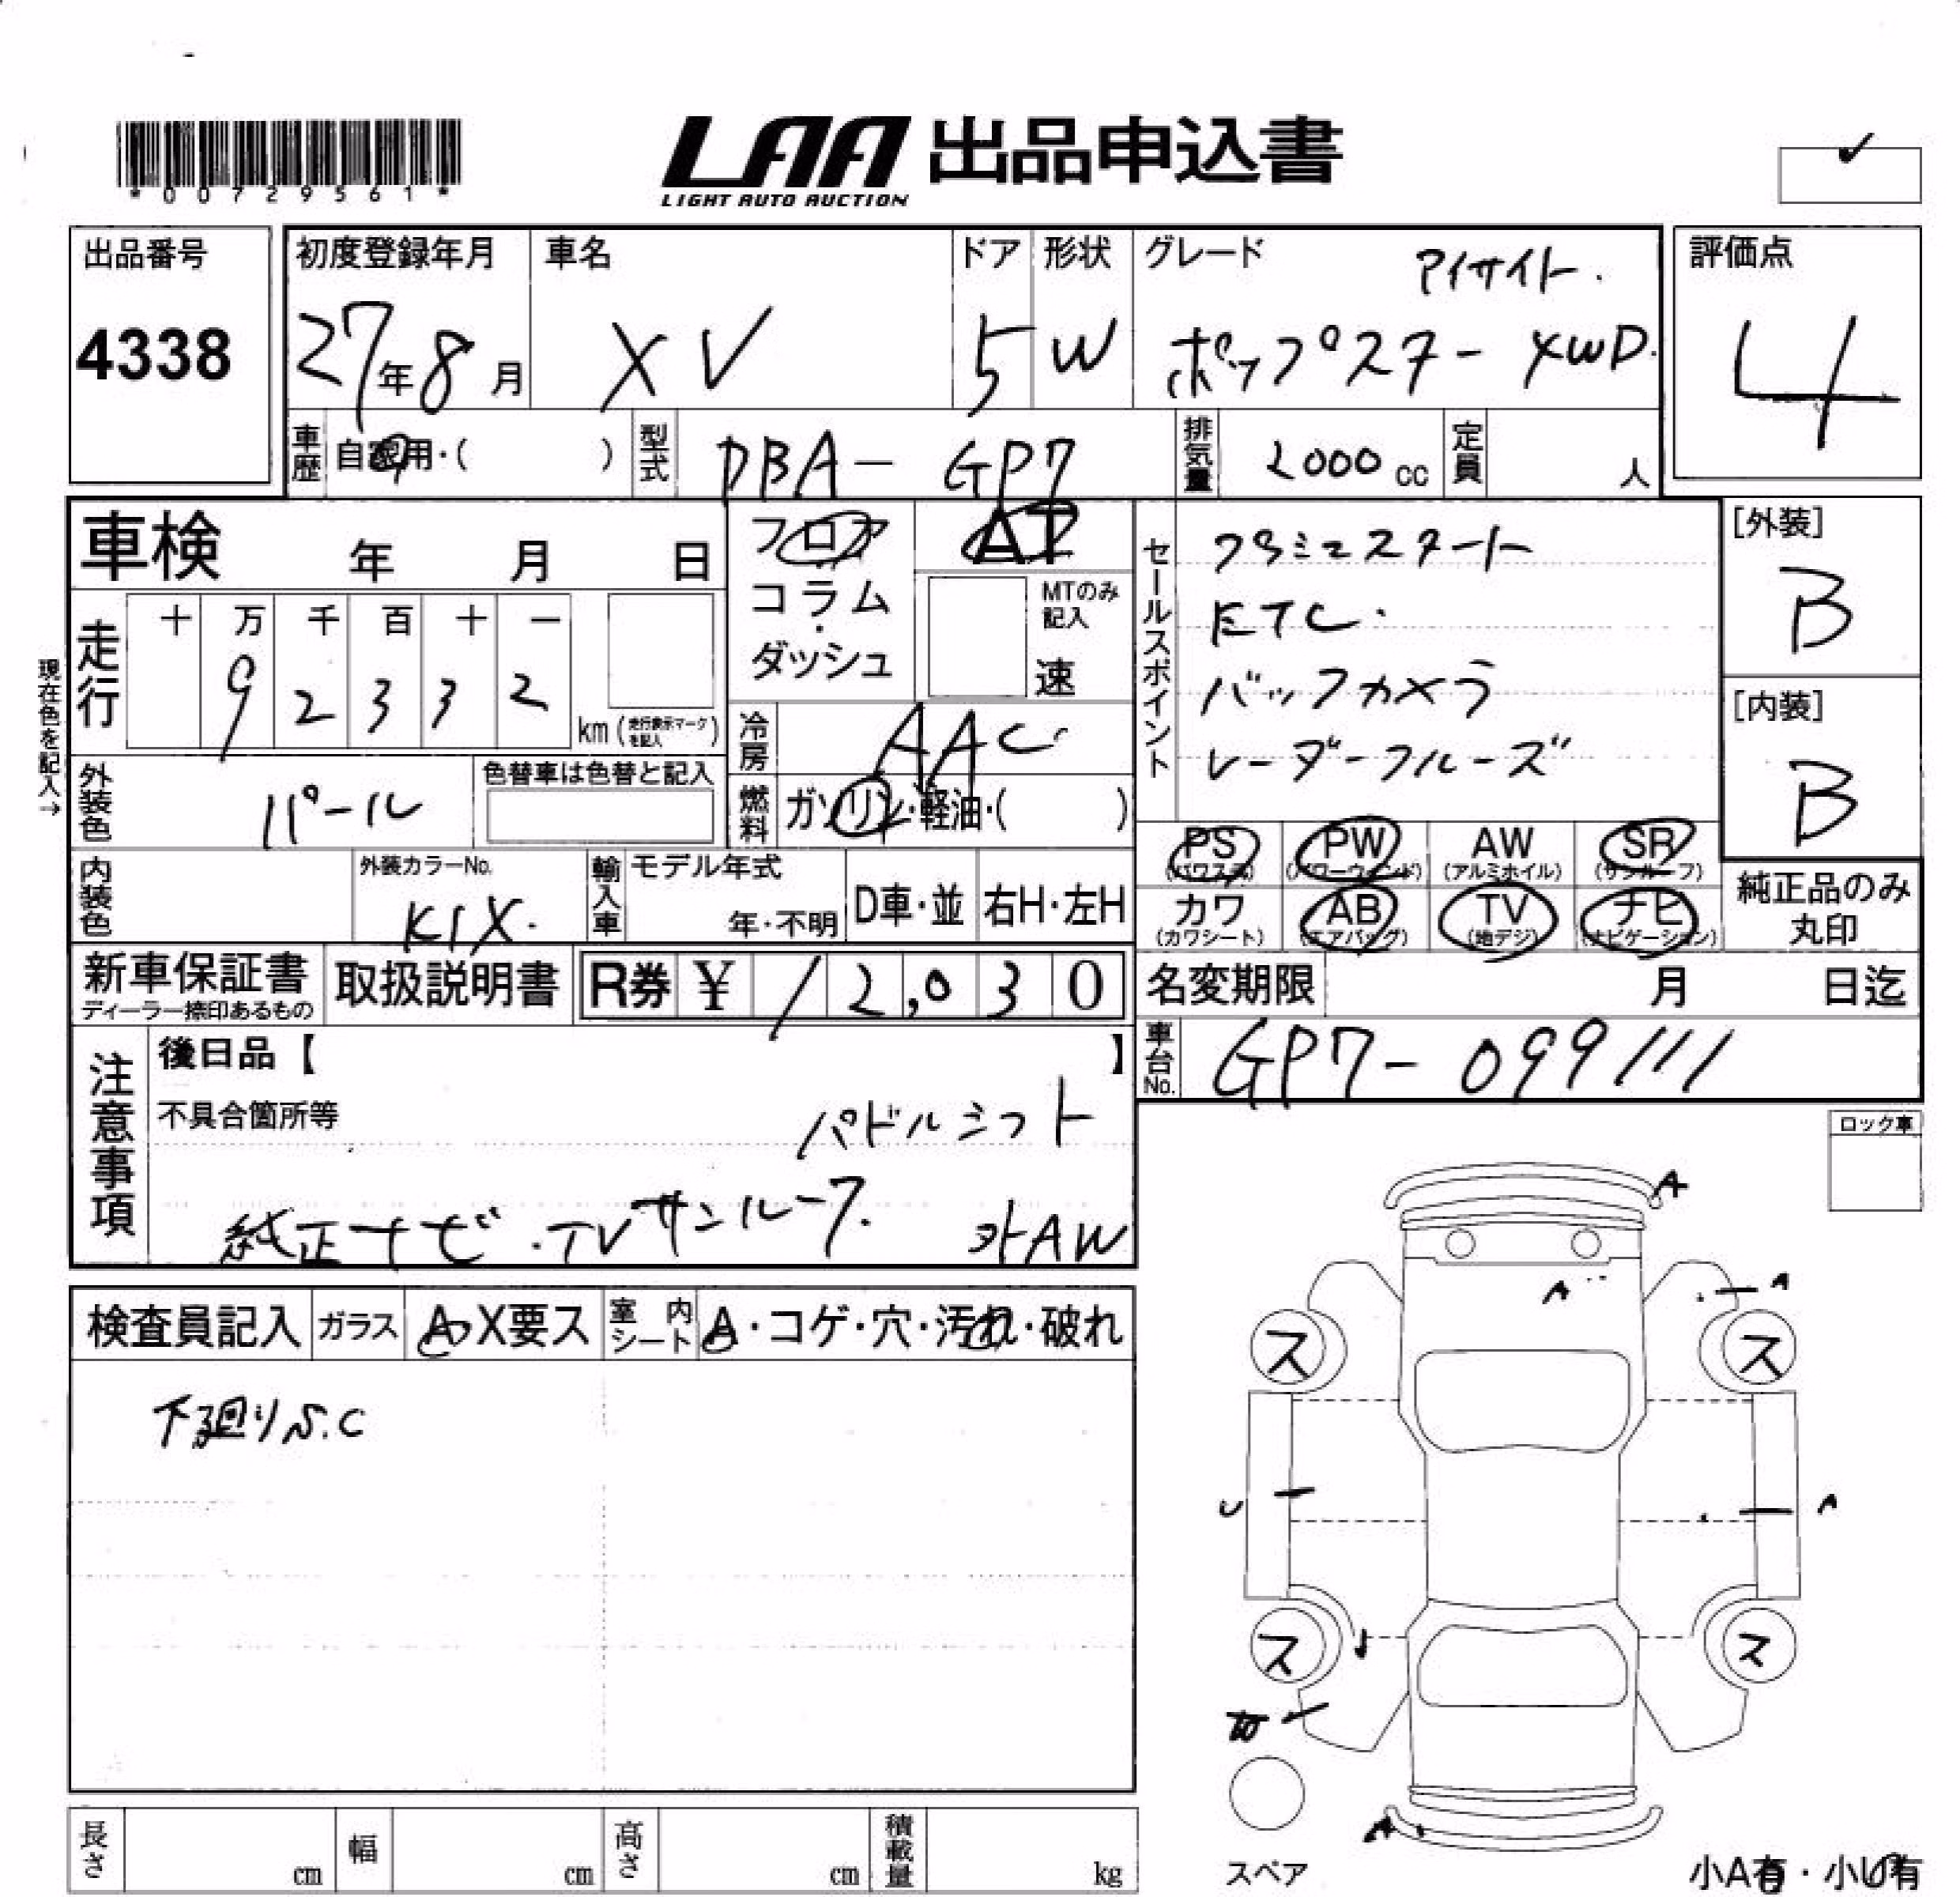 *00729561*
LAA 出品申込書
LIGHT AUTO AUCTION
出品番号
4338
初度登録年月
27年8月
車名
XV
ドア
5
形状
W
グレード
アイサイト.
ポップスター 4WD.
評価点
4
車歴 自家用・( )
型式 DBA-GP7
排気量 2000 cc
定員 人
車検 年 月 日
現在色を記入→
走行
十 万 千 百 十 一
9 2 3 3 2
km (走行表示マークを記入)
フロア
コラム
・
ダッシュ
AT
MTのみ記入
速
冷房 AAC
燃料 ガソリン・軽油・( )
外装色 パール
色替車は色替と記入
内装色
外装カラーNo.
K1X.
輸入車
モデル年式
年・不明
D車・並
右H・左H
セールスポイント
プッシュスタート
ETC.
バックカメラ
レーダークルーズ
[外装]
B
[内装]
B
PS (パワステ)
PW (パワーウィンド)
AW (アルミホイル)
SR (サンルーフ)
カワ (カワシート)
AB (エアバッグ)
TV (地デジ)
ナビ (ナビゲーション)
純正品のみ
丸印
新車保証書
ディーラー捺印あるもの
取扱説明書
R券 ¥ 12,030
名変期限 月 日迄
車台No. GP7-099111
注意事項
後日品【 】
不具合箇所等
パドルシフト
純正ナビ・TV サンルーフ. 外AW
ロック車
検査員記入
ガラス A・X要ス
室内シート A・コゲ・穴・汚れ・破れ
下廻りS.C
A
A
A
ス
ス
U
A
ス
ス
W
A
スペア
小A有・小U有
長さ cm
幅 cm
高さ cm
積載量 kg